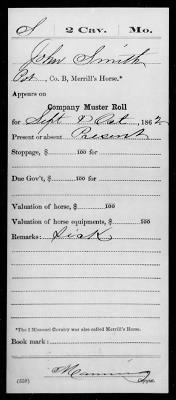 S | 2 Cav. | Mo.
John Smith
Pvt., Co. B, Merrill's Horse.*
Appears on
Company Muster Roll
for Sept & Oct, 1862
Present or absent Present
Stoppage, $ 100 for
Due Gov't, $ 100 for
Valuation of horse, $ 100
Valuation of horse equipments, $ 100
Remarks: Sick
*The 2 Missouri Cavalry was also called Merrill's Horse.
Book mark:
Manning
(358) Copyist.